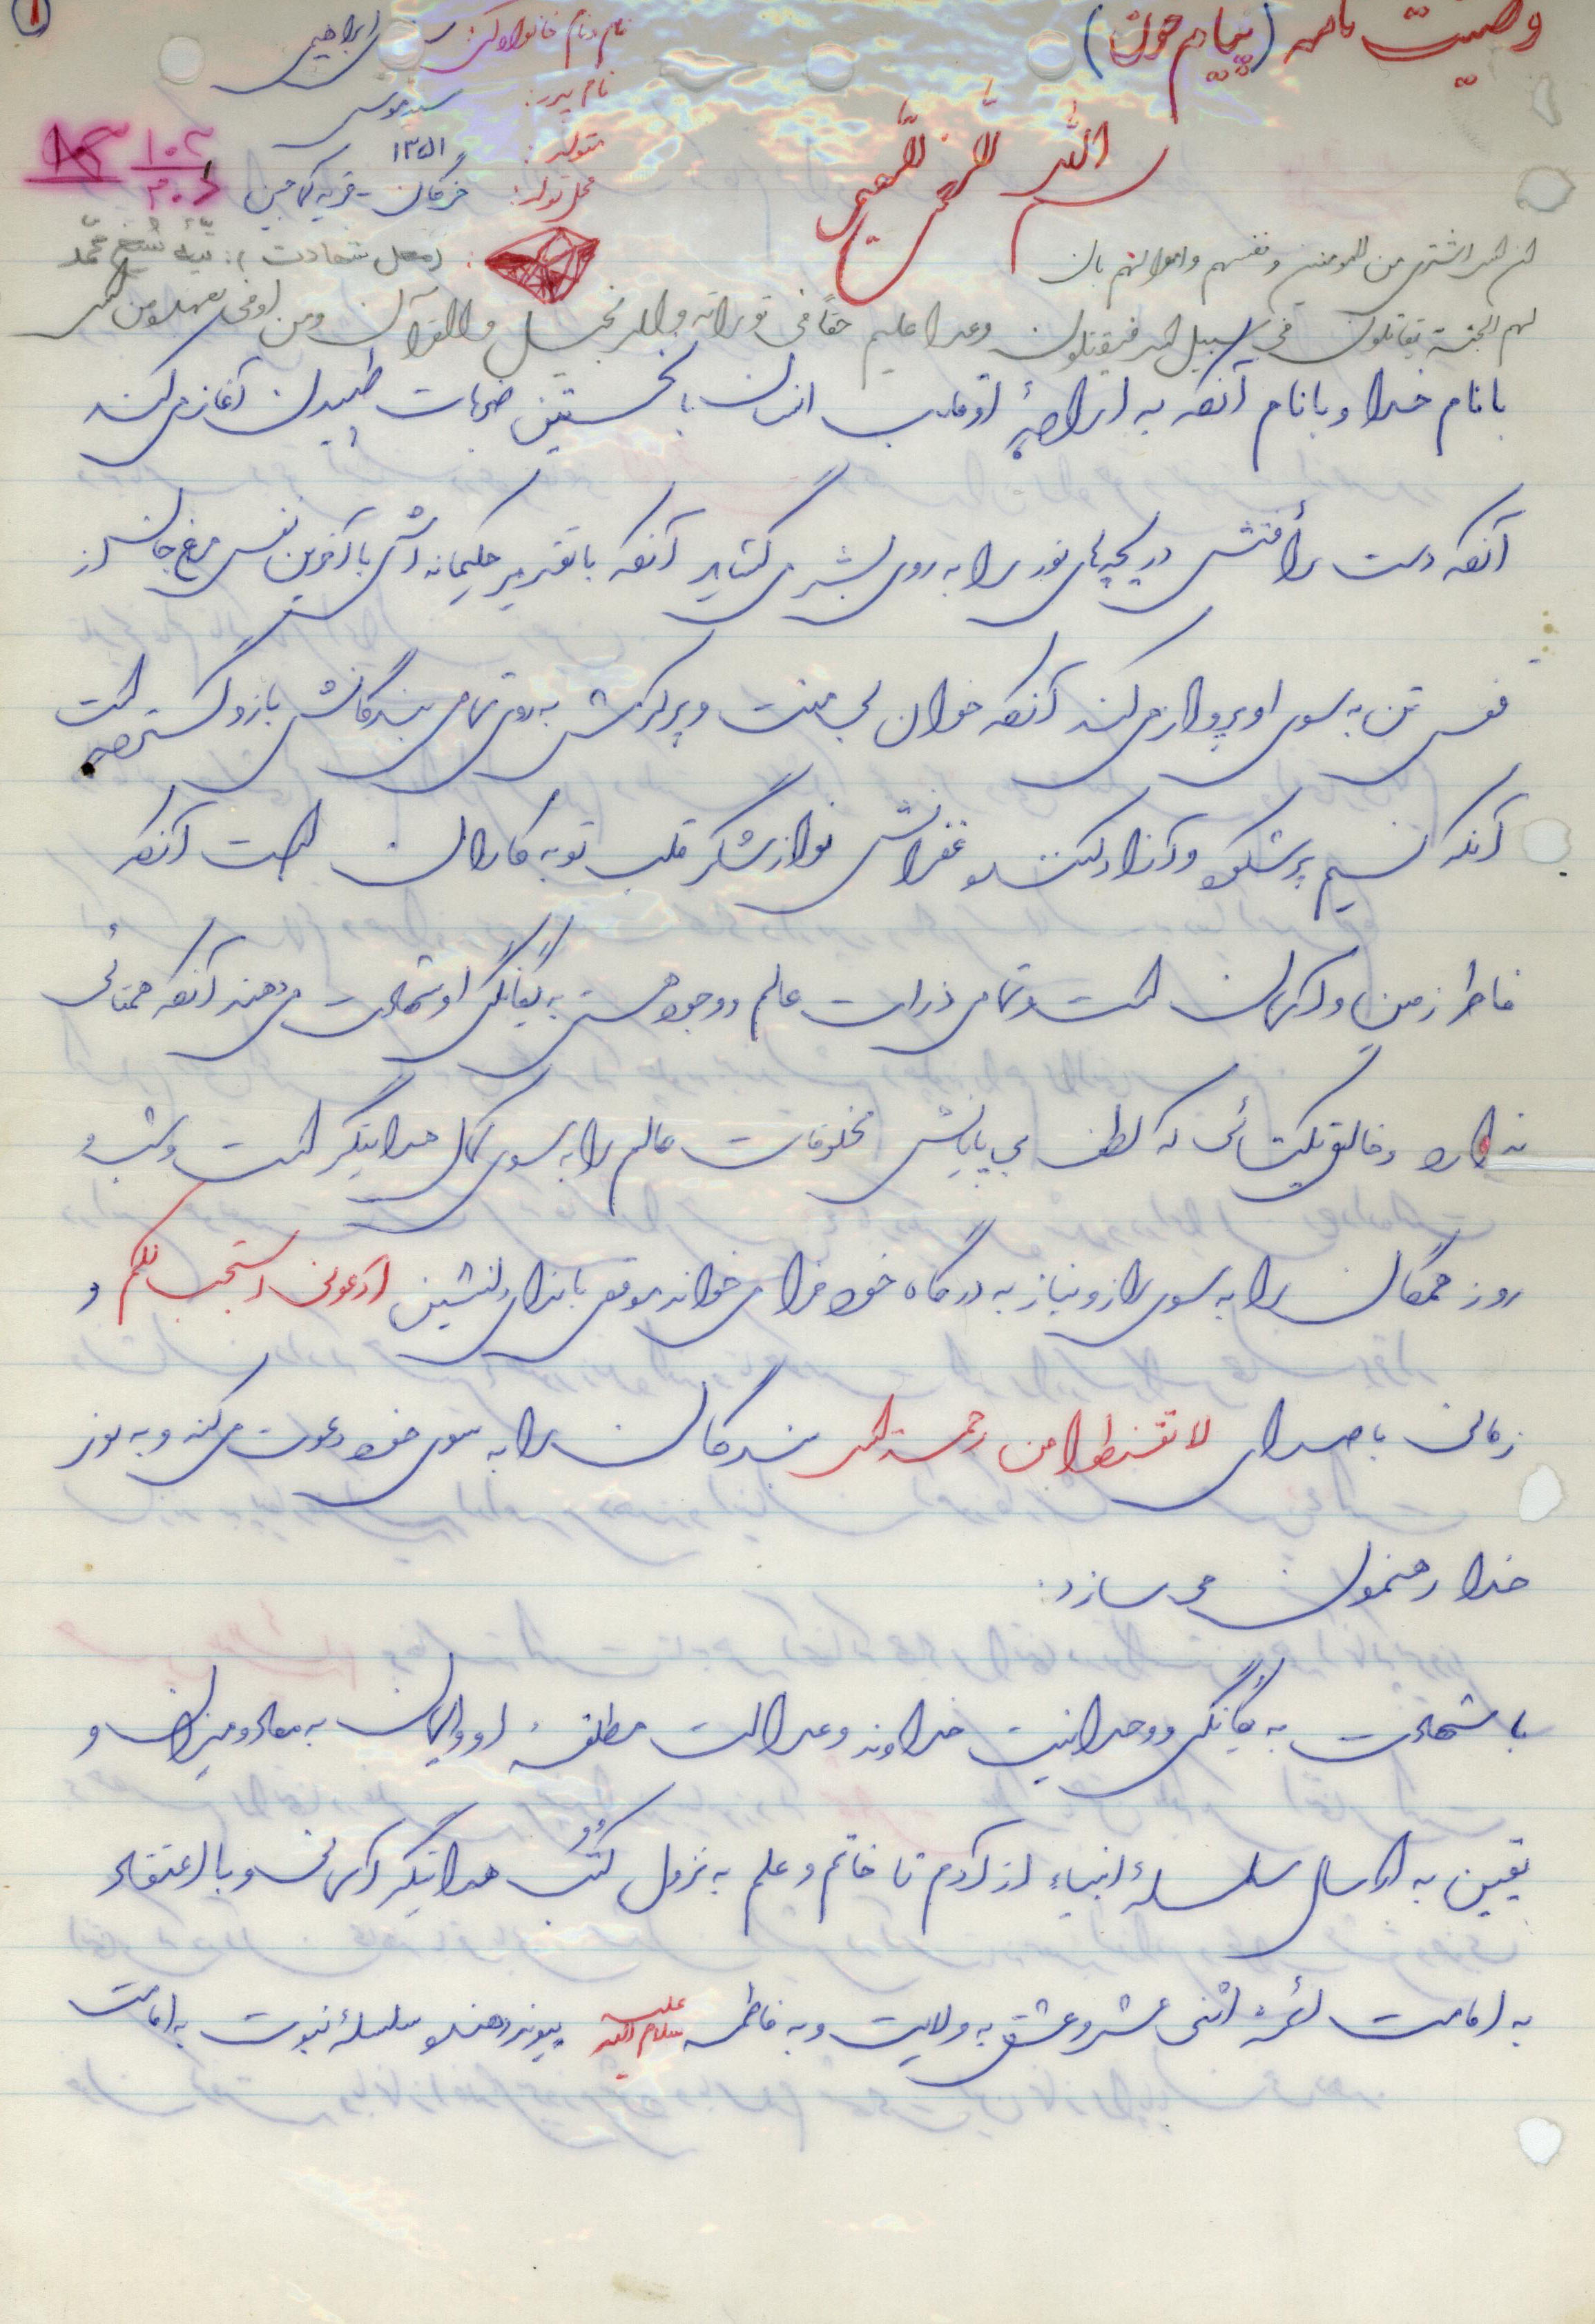 وصیت نامه (پیام خون)
نام و نام خانوادگی: ابراهیمی
نام پدر: سید موسی
متولد: ۱۳۵۱
محل تولد: خرقان - قریه کلاجین
۱۰۲
بسم الله الرحمن الرحیم
(محل شهادت): تپه شیخ محمد
ان الله اشتری من المومنین و نفسهم و اموالهم بان
لهم الجنة یقاتلون فی سبیل الله فیقتلون وعدا علیه حقاً فی توراته والانجیل والقرآن ومن اوفی بعهده من الله
با نام خدا و با نام آنکه به ارادهٔ او قلب انسان با نخستین ضربات طپیدن آغاز می کند
آنکه دست رأفتش دریچه های نور را به روی بشر می گشاید آنکه با تقدیر حکیمانه اش با آخرین نفس مرغ جان از
قفس تن به سوی او پرواز می کند آنکه خوان بی منت و پر کرمش به روی تمامی بندگانش باز و گسترده است
آنکه نسیم پرشکوه و آزاد کننده غفرانش نوازشگر قلب توبه کاران است آنکه
فاطر زمین و آسمان است و تمامی ذرات عالم وجود هستی به یگانگی او شهادت می دهند آنکه همتائی
ندارد و خالق یکتائی که لطف بی پایانش مخلوقات عالم را به سوی کمال هدایتگر است و شب و
روز همگان را به سوی راز و نیاز به درگاه خود فرا می خواند موقعی با ندای دلنشین ادعونی استجب لکم و
زمانی با صدای لا تقنطوا من رحمة الله بندگان را به سوی خود دعوت می کند و به نور
خدا رهنمون می سازد.
با شهادت به یگانگی و وحدانیت خداوند و عدالت مطلقهٔ او و ایمان به معاد و میزان و
یقین به ارسال سلسلهٔ انبیاء از آدم تا خاتم و علم به نزول کتب هدایتگر آسمانی و با اعتقاد
به امامت ائمهٔ اثنی عشر و عشق به ولایت و به فاطمه سلام الله علیه پیوند دهنده سلسلهٔ نبوت به امامت